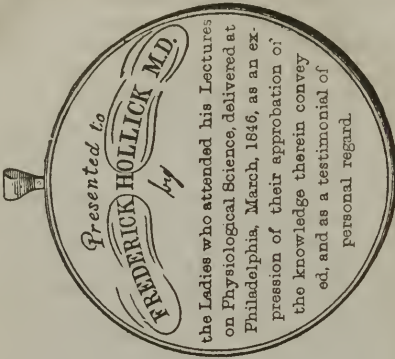 Presented to
FREDERICK HOLLICK M.D.
by
the Ladies who attended his Lectures
on Physiological Science, delivered at
Philadelphia, March, 1846, as an ex-
pression of their approbation of
the knowledge therein convey
ed, and as a testimonial of
personal regard.